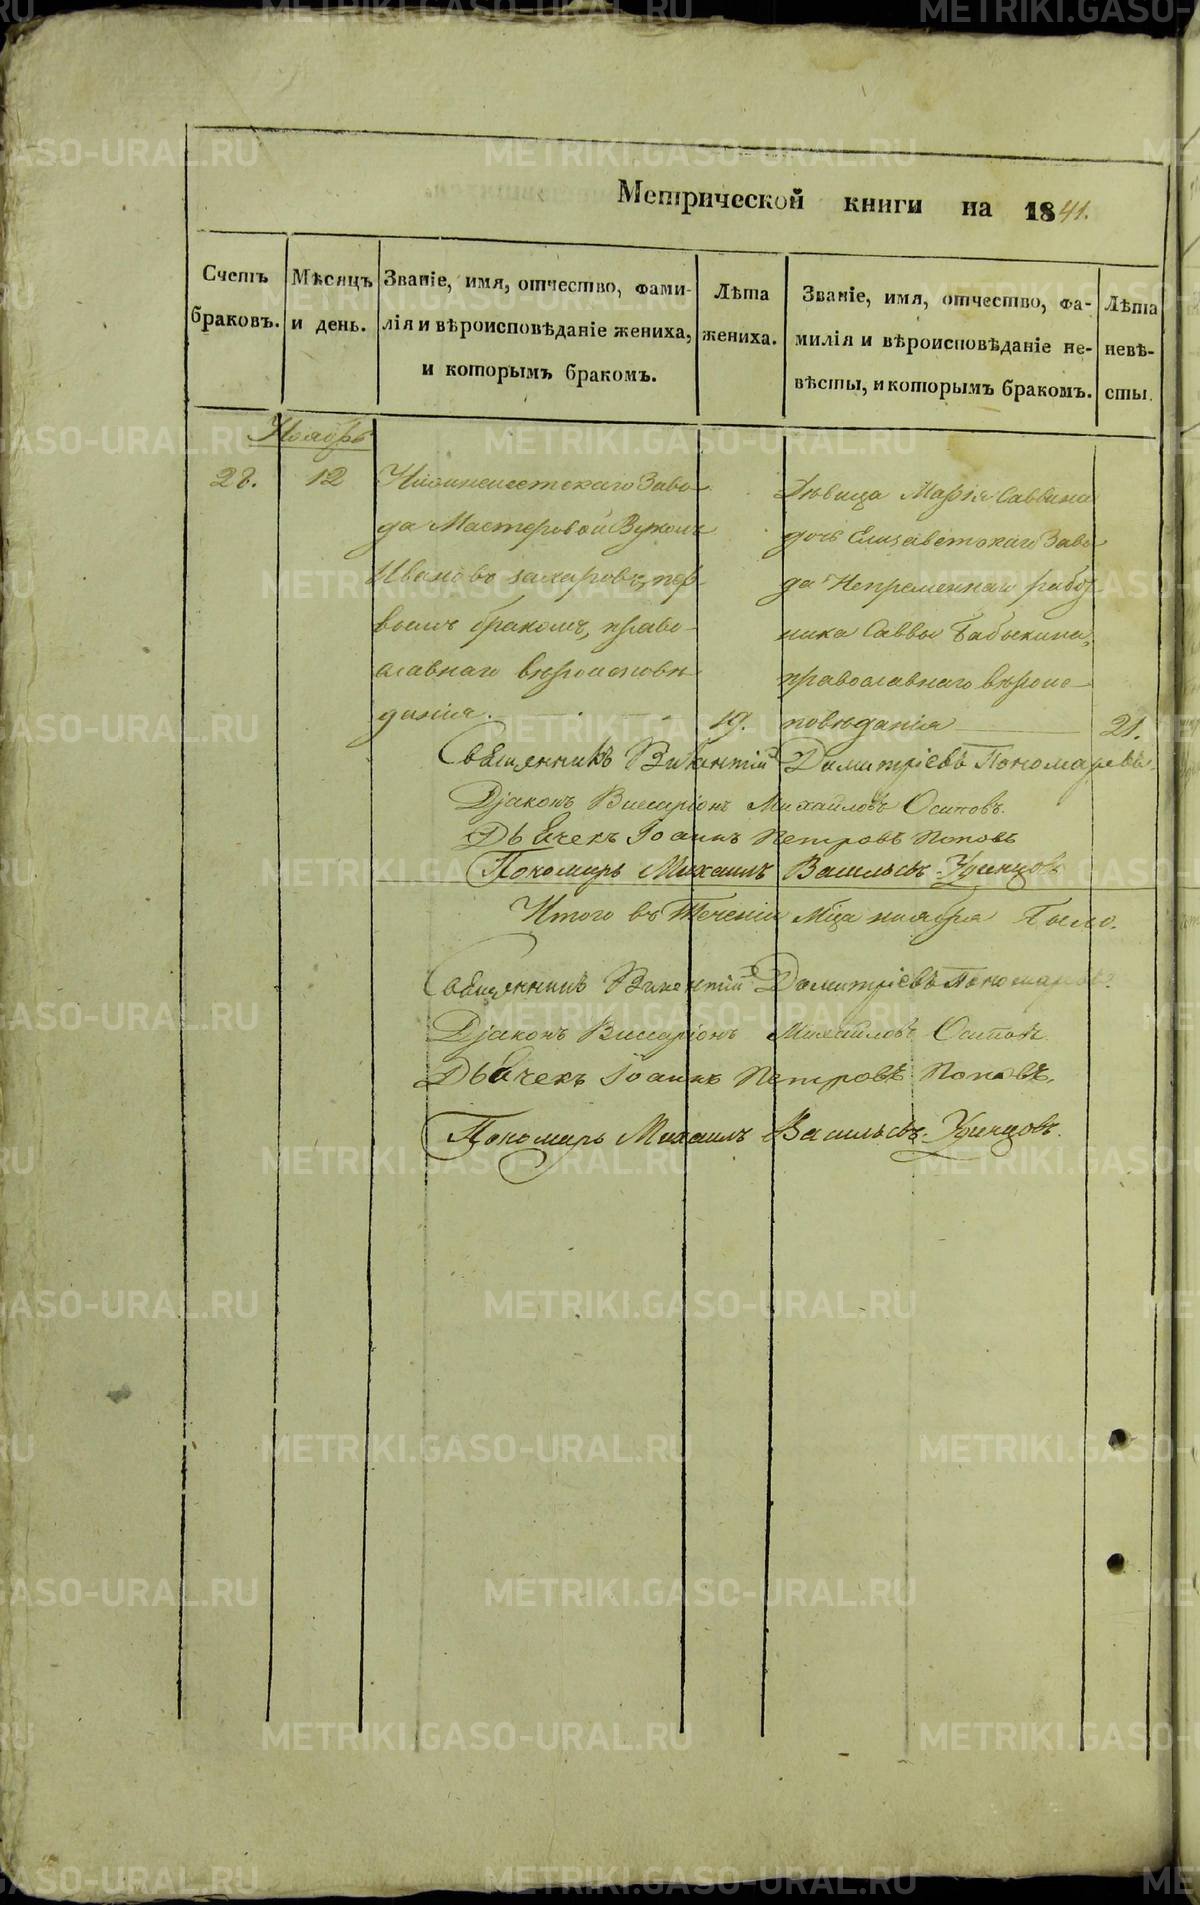 Метрической книги на 1841.
Счетъ браковъ.
Мѣсяцъ и день.
Званіе, имя, отчество, фами-
лія и вѣроисповѣданіе жениха,
и которымъ бракомъ.
Лѣта
жениха.
Званіе, имя, отчество, фа-
милія и вѣроисповѣданіе не-
вѣсты, и которымъ бракомъ.
Лѣта
невѣ-
сты.
Ноябрь
28.
12
Нижнеисетскаго Заво-
да Мастеровой Вуколъ
Ивановъ Захаровъ, пер-
вымъ бракомъ, право-
славнаго вѣроисповѣ-
данія.
19.
Дѣвица Марія Саввина
дочь Елисаветскаго Заво
да Непременнаго работ
ника Саввы Бабыкина,
православнаго вѣроис-
повѣданія
21.
Священникъ Викентій Димитріевъ Пономаревъ.
Діаконъ Виссаріонъ Михайловъ Осиповъ.
Дьячекъ Іоаннъ Петровъ Поповъ
Пономарь Михаилъ Васильевъ
Итого въ Теченіи Мца ноября было.
Священникъ Викентій Димитріевъ Пономаревъ.
Діаконъ Виссаріонъ Михайловъ Осиповъ.
Дьячекъ Іоаннъ Петровъ Поповъ.
Пономарь Михаилъ Васильевъ
METRIKI.GASO-URAL.RU